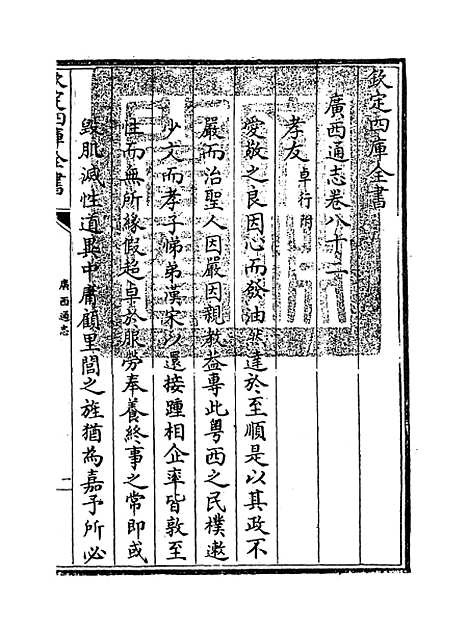 欽定四庫全書
廣西通志卷八十二
孝友卓行附
愛敬之良因心而發油然達於至順是以其政不
嚴而治聖人因嚴因親教益專此粤西之民樸遫
少文而孝子悌弟漢宋以還接踵相企率皆敦至
性而無所緣假超卓於服勞奉養終事之常即或
毁肌滅性道異中庸顧里閭之旌猶為嘉予所必
欽定四庫全書
廣西通志
一